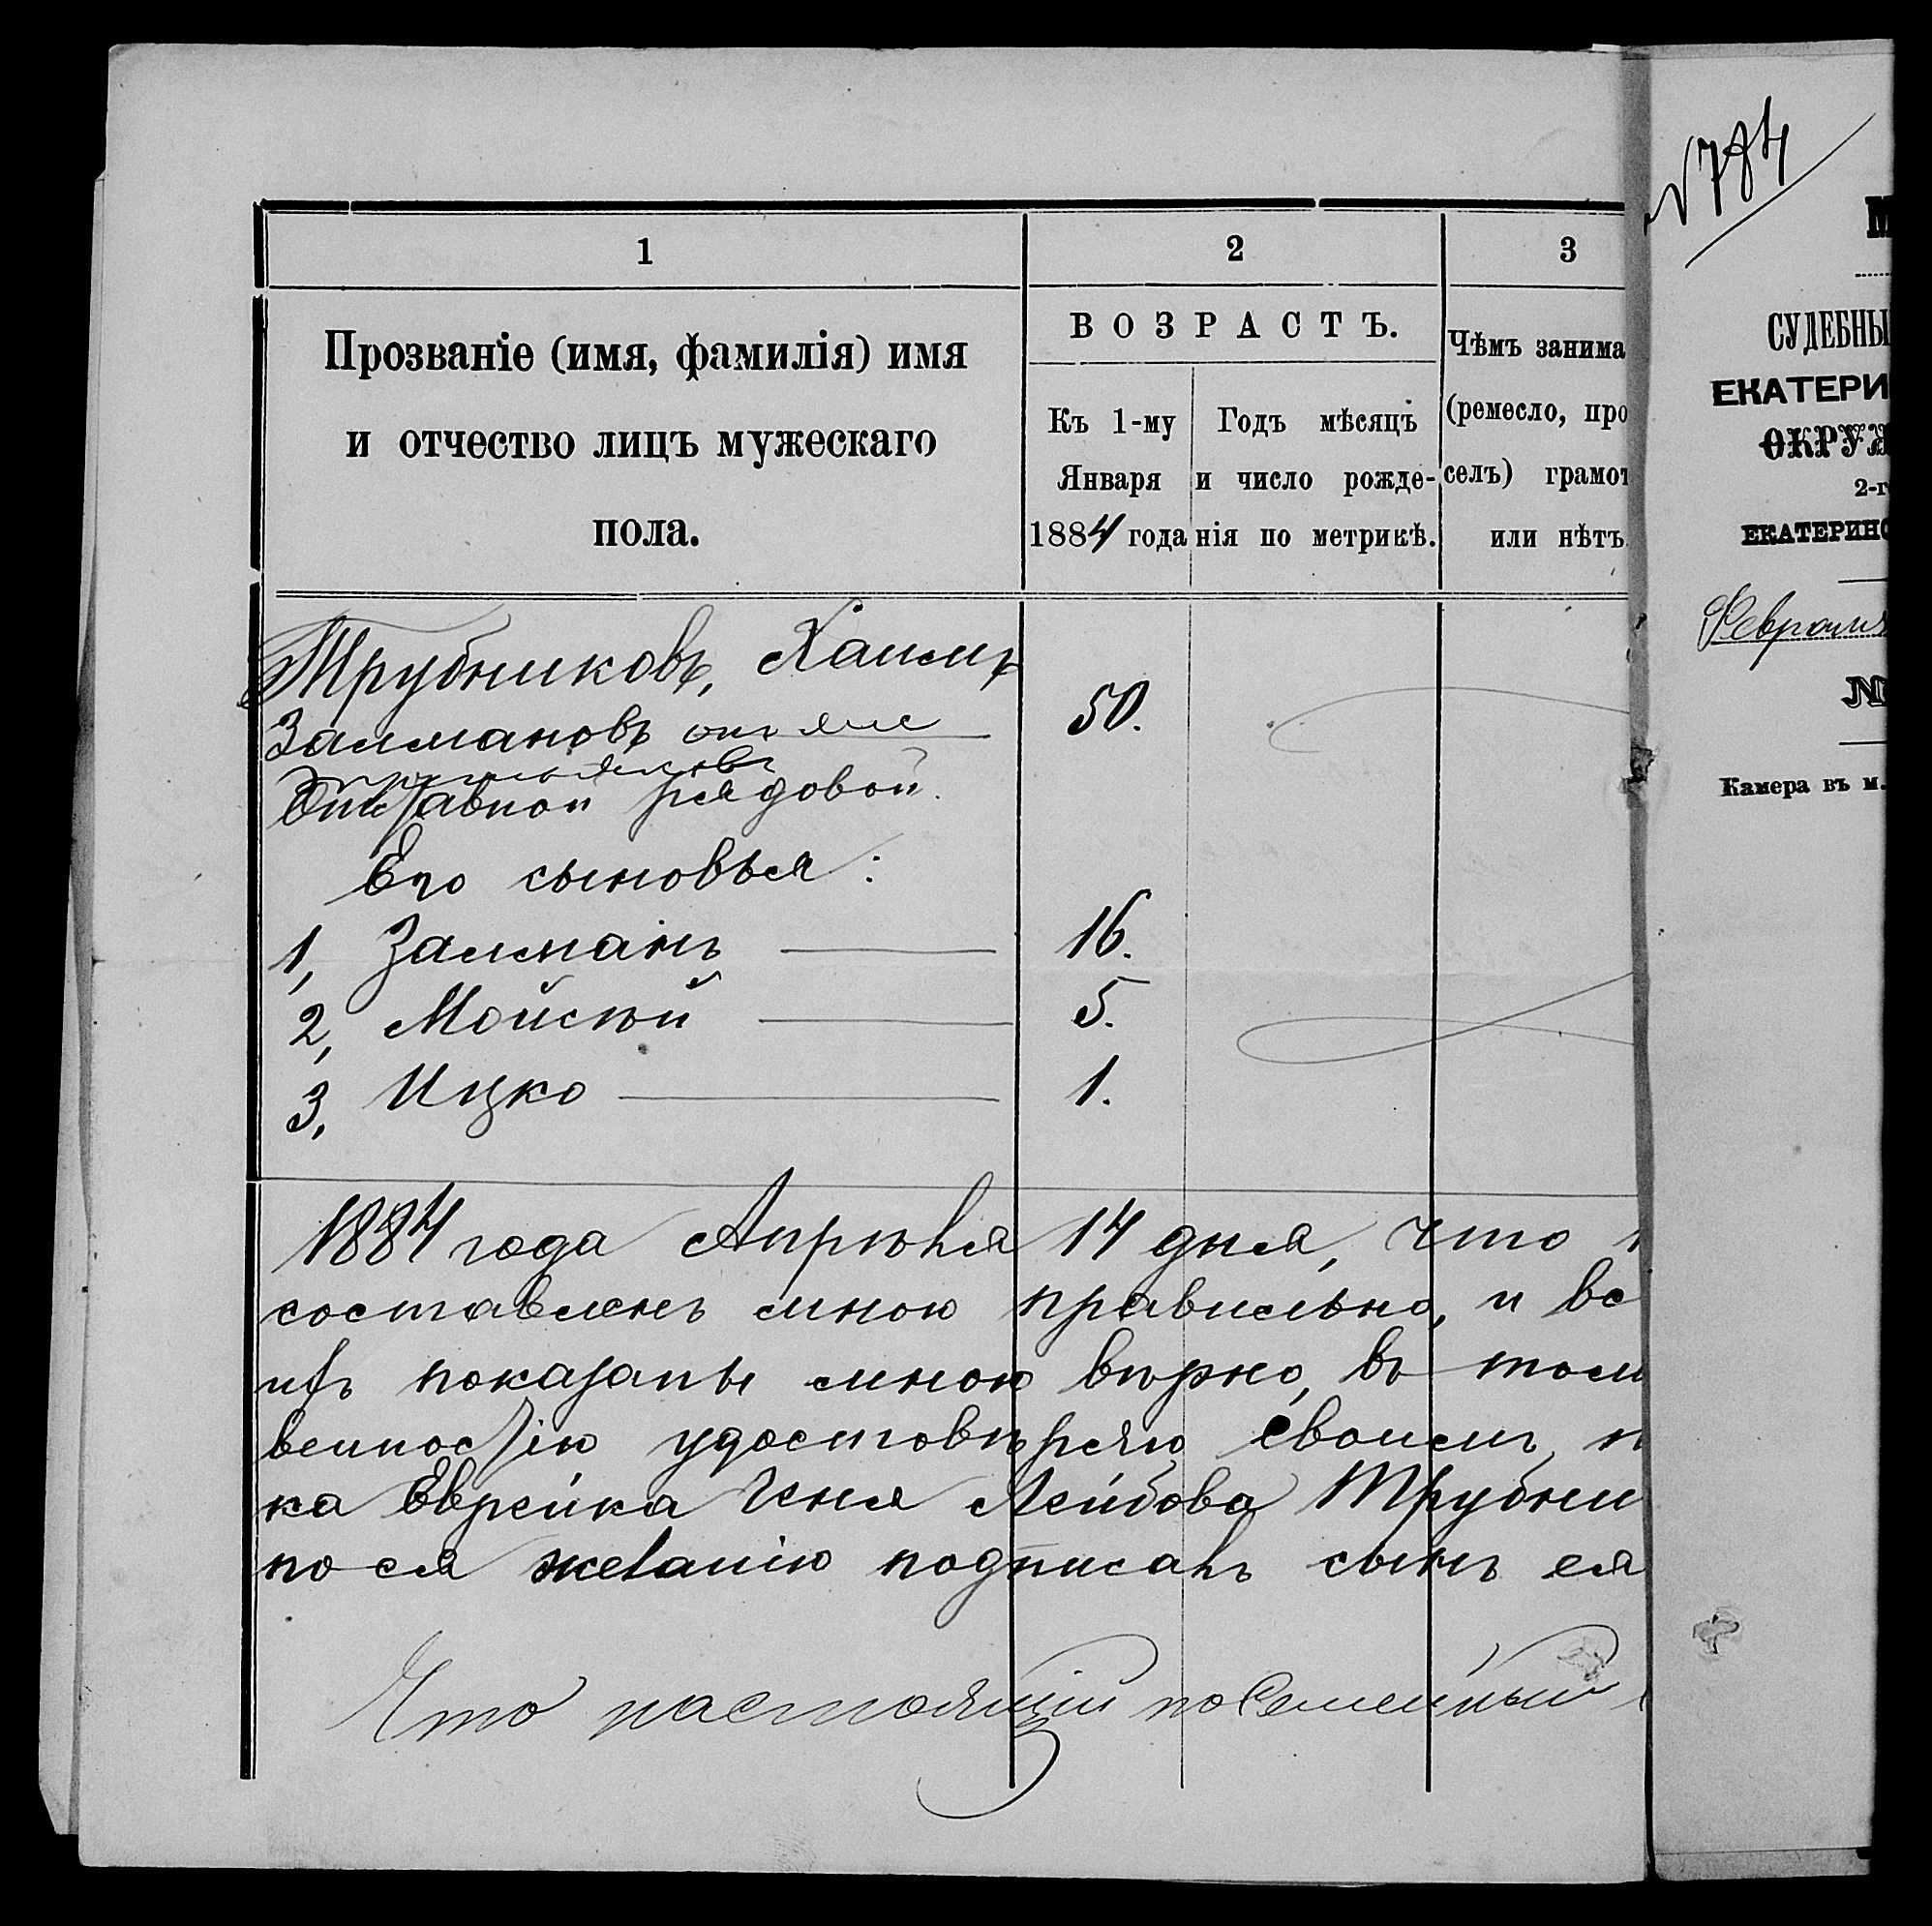 1 2 3
Прозваніе (имя, фамилія) имя
и отчество лицъ мужескаго
пола.
ВОЗРАСТЪ.
Къ 1-му
Января
1884 года
Годъ мѣсяцъ
и число рожде-
нія по метрикѣ.
Чѣмъ занима
(ремесло, про
селъ) грамот
или нѣтъ
Трубниковъ, Хаимъ
Залмановъ онъ же 50.
Отставной рядовой.
Его сыновья:
1, Залманъ 16.
2, Мойсѣй 5.
3, Ицко 1.
1884 года Апрѣля 14 дня, что
составленъ мною правильно, и вс
показаны мною вѣрно, въ том
венностію удостовѣряю своимъ
ка Еврейка Геня Лейбова Трубни
по ея желанію подписалъ сынъ ея
Что настоящій посемейный
№ 784
М
СУДЕБНЫ
ЕКАТЕРИ
ОКРУЖ
2-г
ЕКАТЕРИНО
Февраля
№
Камера въ м.